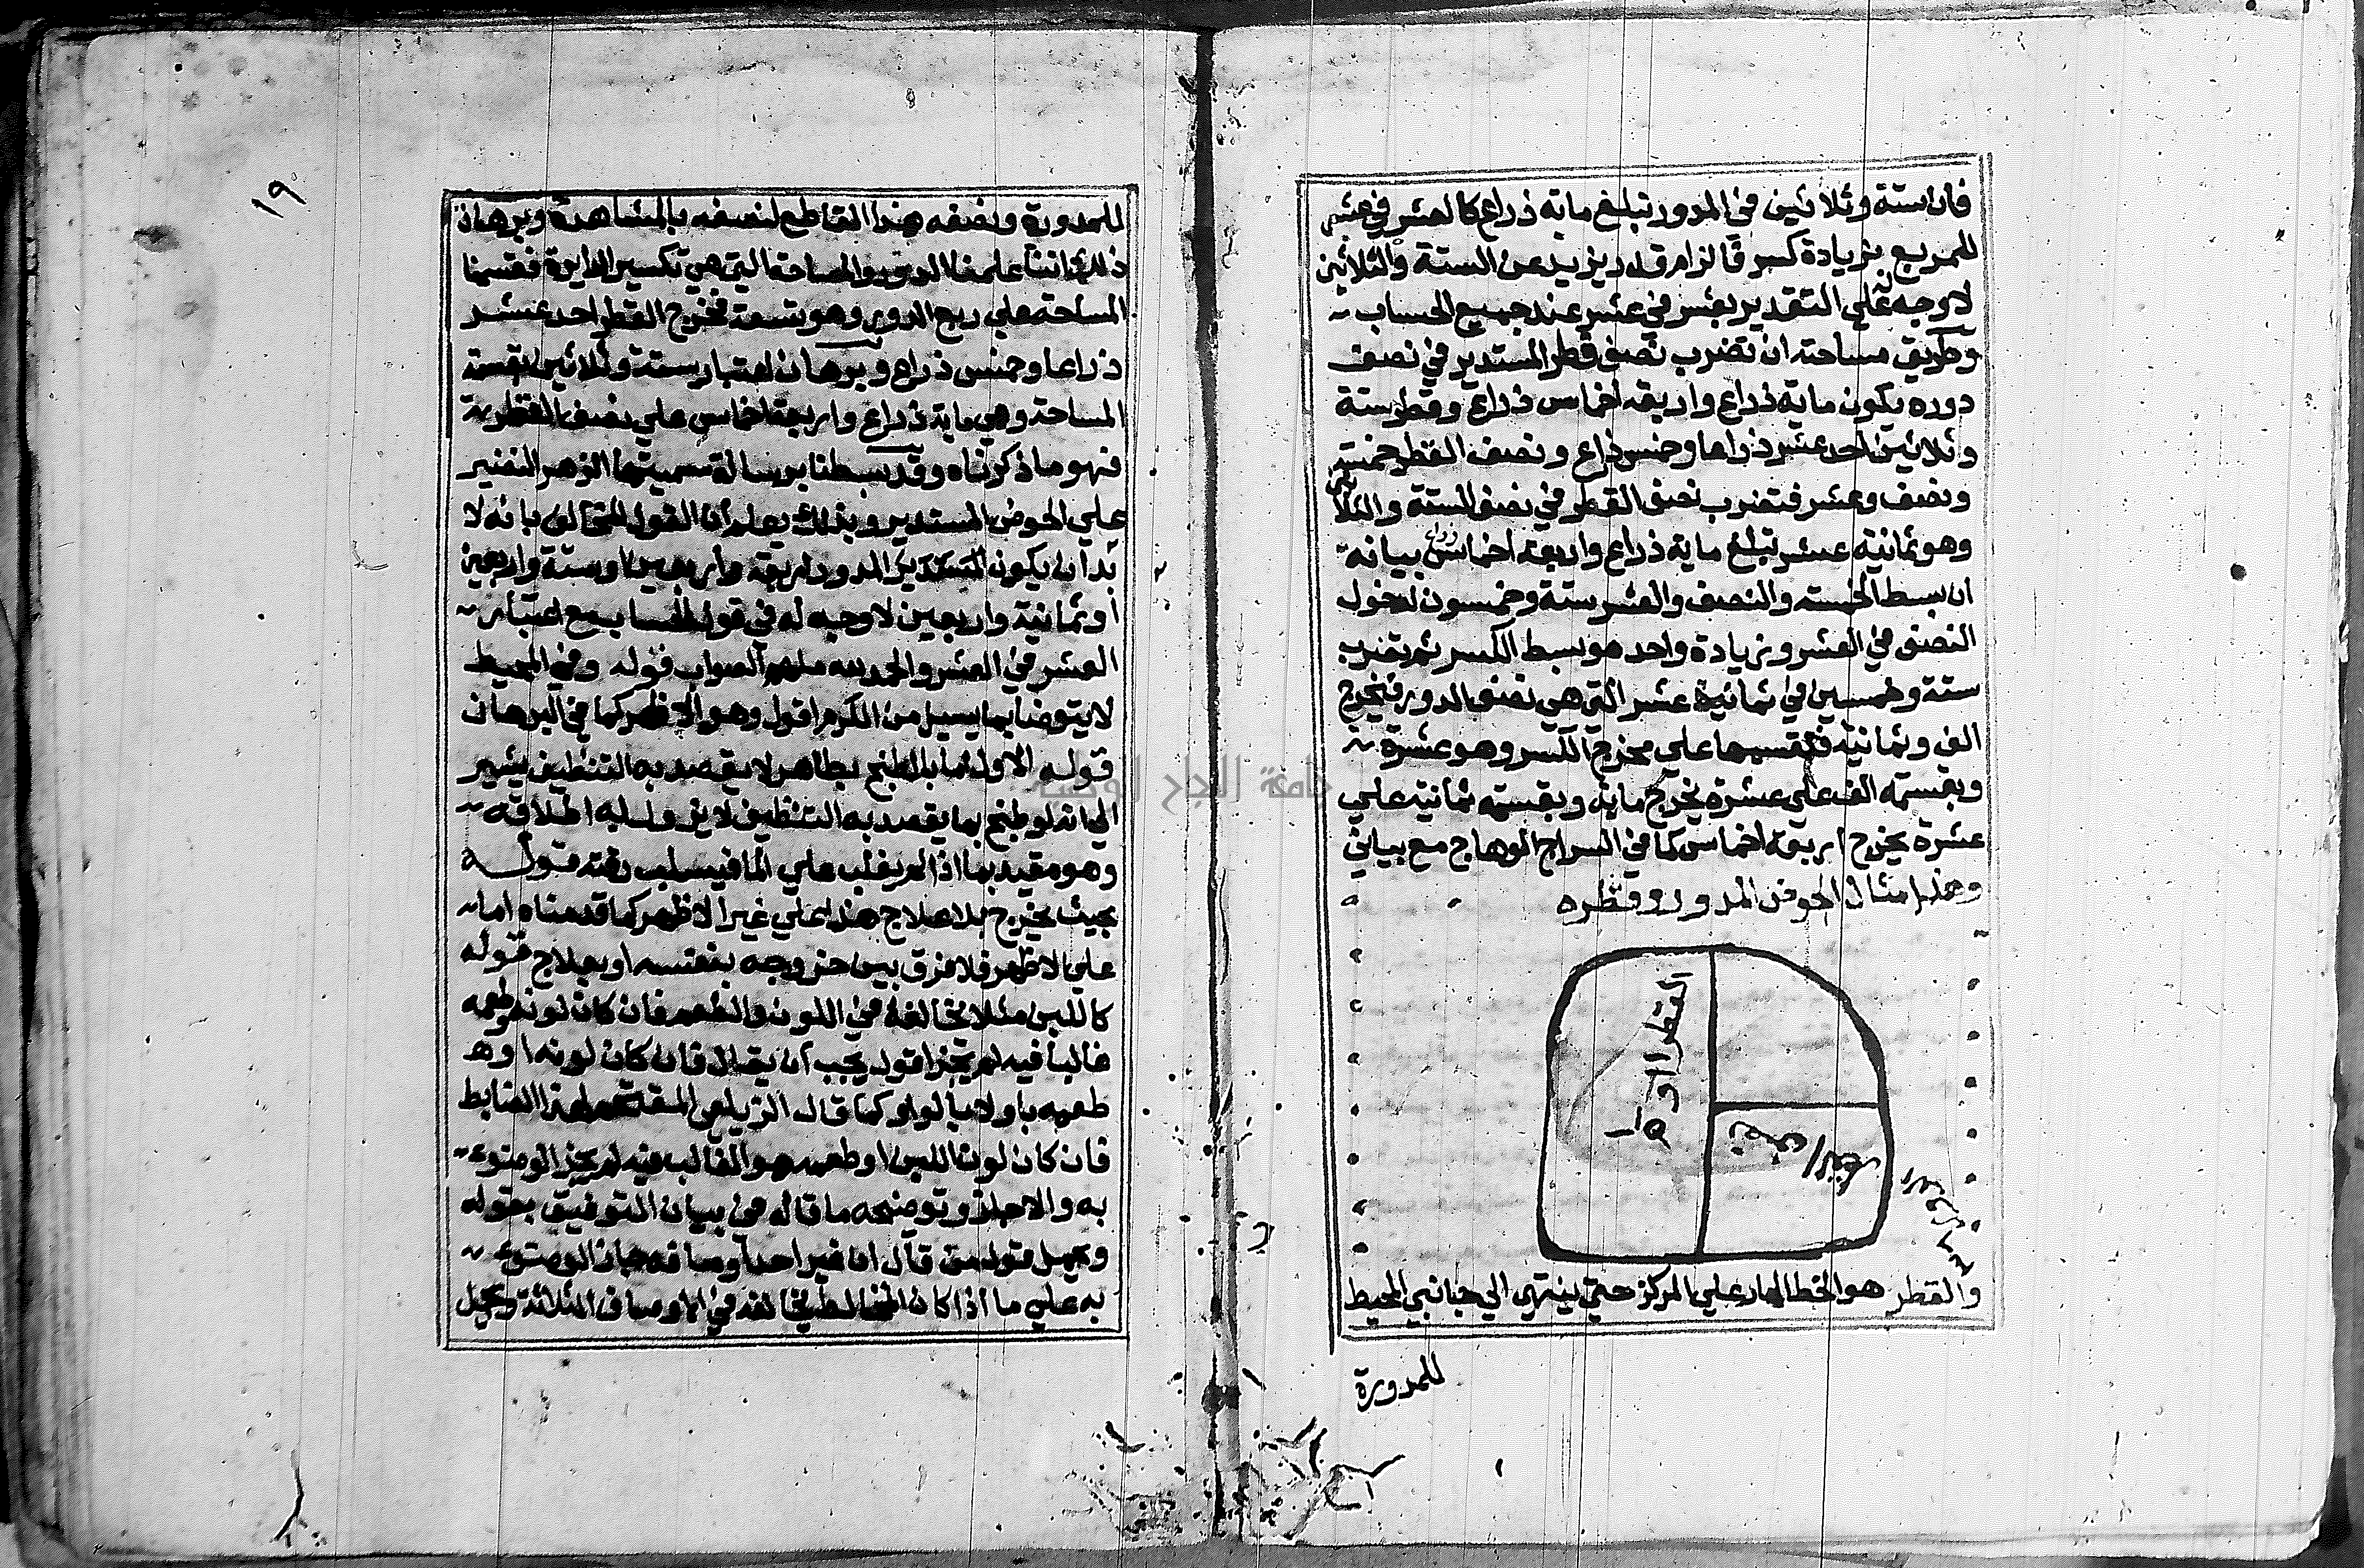 فان ستة وثلاثين في المدور تبلغ مائة ذراع كالعشر في عشر
للمربع بزيادة كسر فالزام قدر يزيد عن الستة والثلاثين
لا وجه له علي التقدير بعشر في عشر عند جميع الحساب
وطريق مساحته ان تضرب نصف قطر المستدير في نصف
دوره يكون ماية ذراع واربعة اخماس ذراع وقطر ستة
وثلاثين احد عشر ذراعا وخمس ذراع ونصف القطر خمسة
ونصف وعشر فتضرب نصف القطر في نصف الستة والثلاثين
وهو ثمانية عشر تبلغ ماية ذراع واربعة اخماس ذراع بيانه
ان بسط الخمسة والنصف والعشر ستة وخمسون لدخول
النصف في العشر وزيادة واحد هو بسط الكسر ثم تضرب
ستة وخمسين في ثمانية عشر التي هي نصف الدور فيخرج
الف وثمانية فتقسمها علي مخرج الكسر وهو عشرة
وبقسمة الف علي عشرة يخرج ماية وبقسمة ثمانية علي
عشرة يخرج اربعة اخماس كما في السراج الوهاج مع بياني
وهذا مثال الحوض المدور وقطره
القطر ١١ و
والقطر هو الخط المار علي المركز حتي ينتهي الي جانبي المحيط
للمدورة
١٩
للمدورة ونصفه هذا القاطع لنصفه بالمشاهدة وبرهان
ذلك اننا علمنا الدور والمساحة التي هي تكسير الدايرة فقسمنا
المساحة علي ربع الدور وهو تسعة فخرج القطر احد عشر
ذراعا وخمس ذراع وبرهان اعتبار ستة وثلاثين بقسمة
المساحة وهي ماية ذراع واربعة اخماس علي نصف القطر
فهو ما ذكرناه وقد بسطنا برسالة سميتها الزهر النضير
علي الحوض المستدير وبذلك يعلم ان القول المخالف بانه لا
بد ان يكون المستدير المدور اربعة واربعين او ستة واربعين
او ثمانية واربعين لا وجه له في قول الحساب مع اعتبار
العشر في العشر والحمد لله ملهم الصواب قوله وفي المحيط
لا يتوضا بما يسيل من الكرم اقول وهو الاظهر كما في البرهان
قوله الاول ما بالطبخ بطاهر لا يقصد به التنظيف يشير
الي انه لو طبخ بما يقصد به التنظيف لا يزول به اطلاقه
وهو مقيد بما اذا لم يغلب علي الما فيسلب رقته قوله
بحيث يخرج بلا علاج هذا علي غير الاظهر كما قدمناه اما
علي الاظهر فلا فرق بين خروجه بنفسه او بعلاج قوله
كاللبن مثلا مخالفة في اللون والطعم فان كان لونه وطعمه
غالبا فيه لم يجز اقول يجب ان يقال فان كان لونه او
طعمه باو لا بالواو كما قال الزيلعي لهذا الضابط
فان كان لون اللبن او طعمه هو الغالب فيه لم يجز الوضوء
به والا جاز وتوضحه ما قاله في بيان التوفيق بقوله
ويحمل قول من قال ان غير احد اوصافه جاز الوضوء
به علي ما اذا كان المخالط يخالفه في الاوصاف الثلاثة ويحمل
جامعة النجاح الوطنية